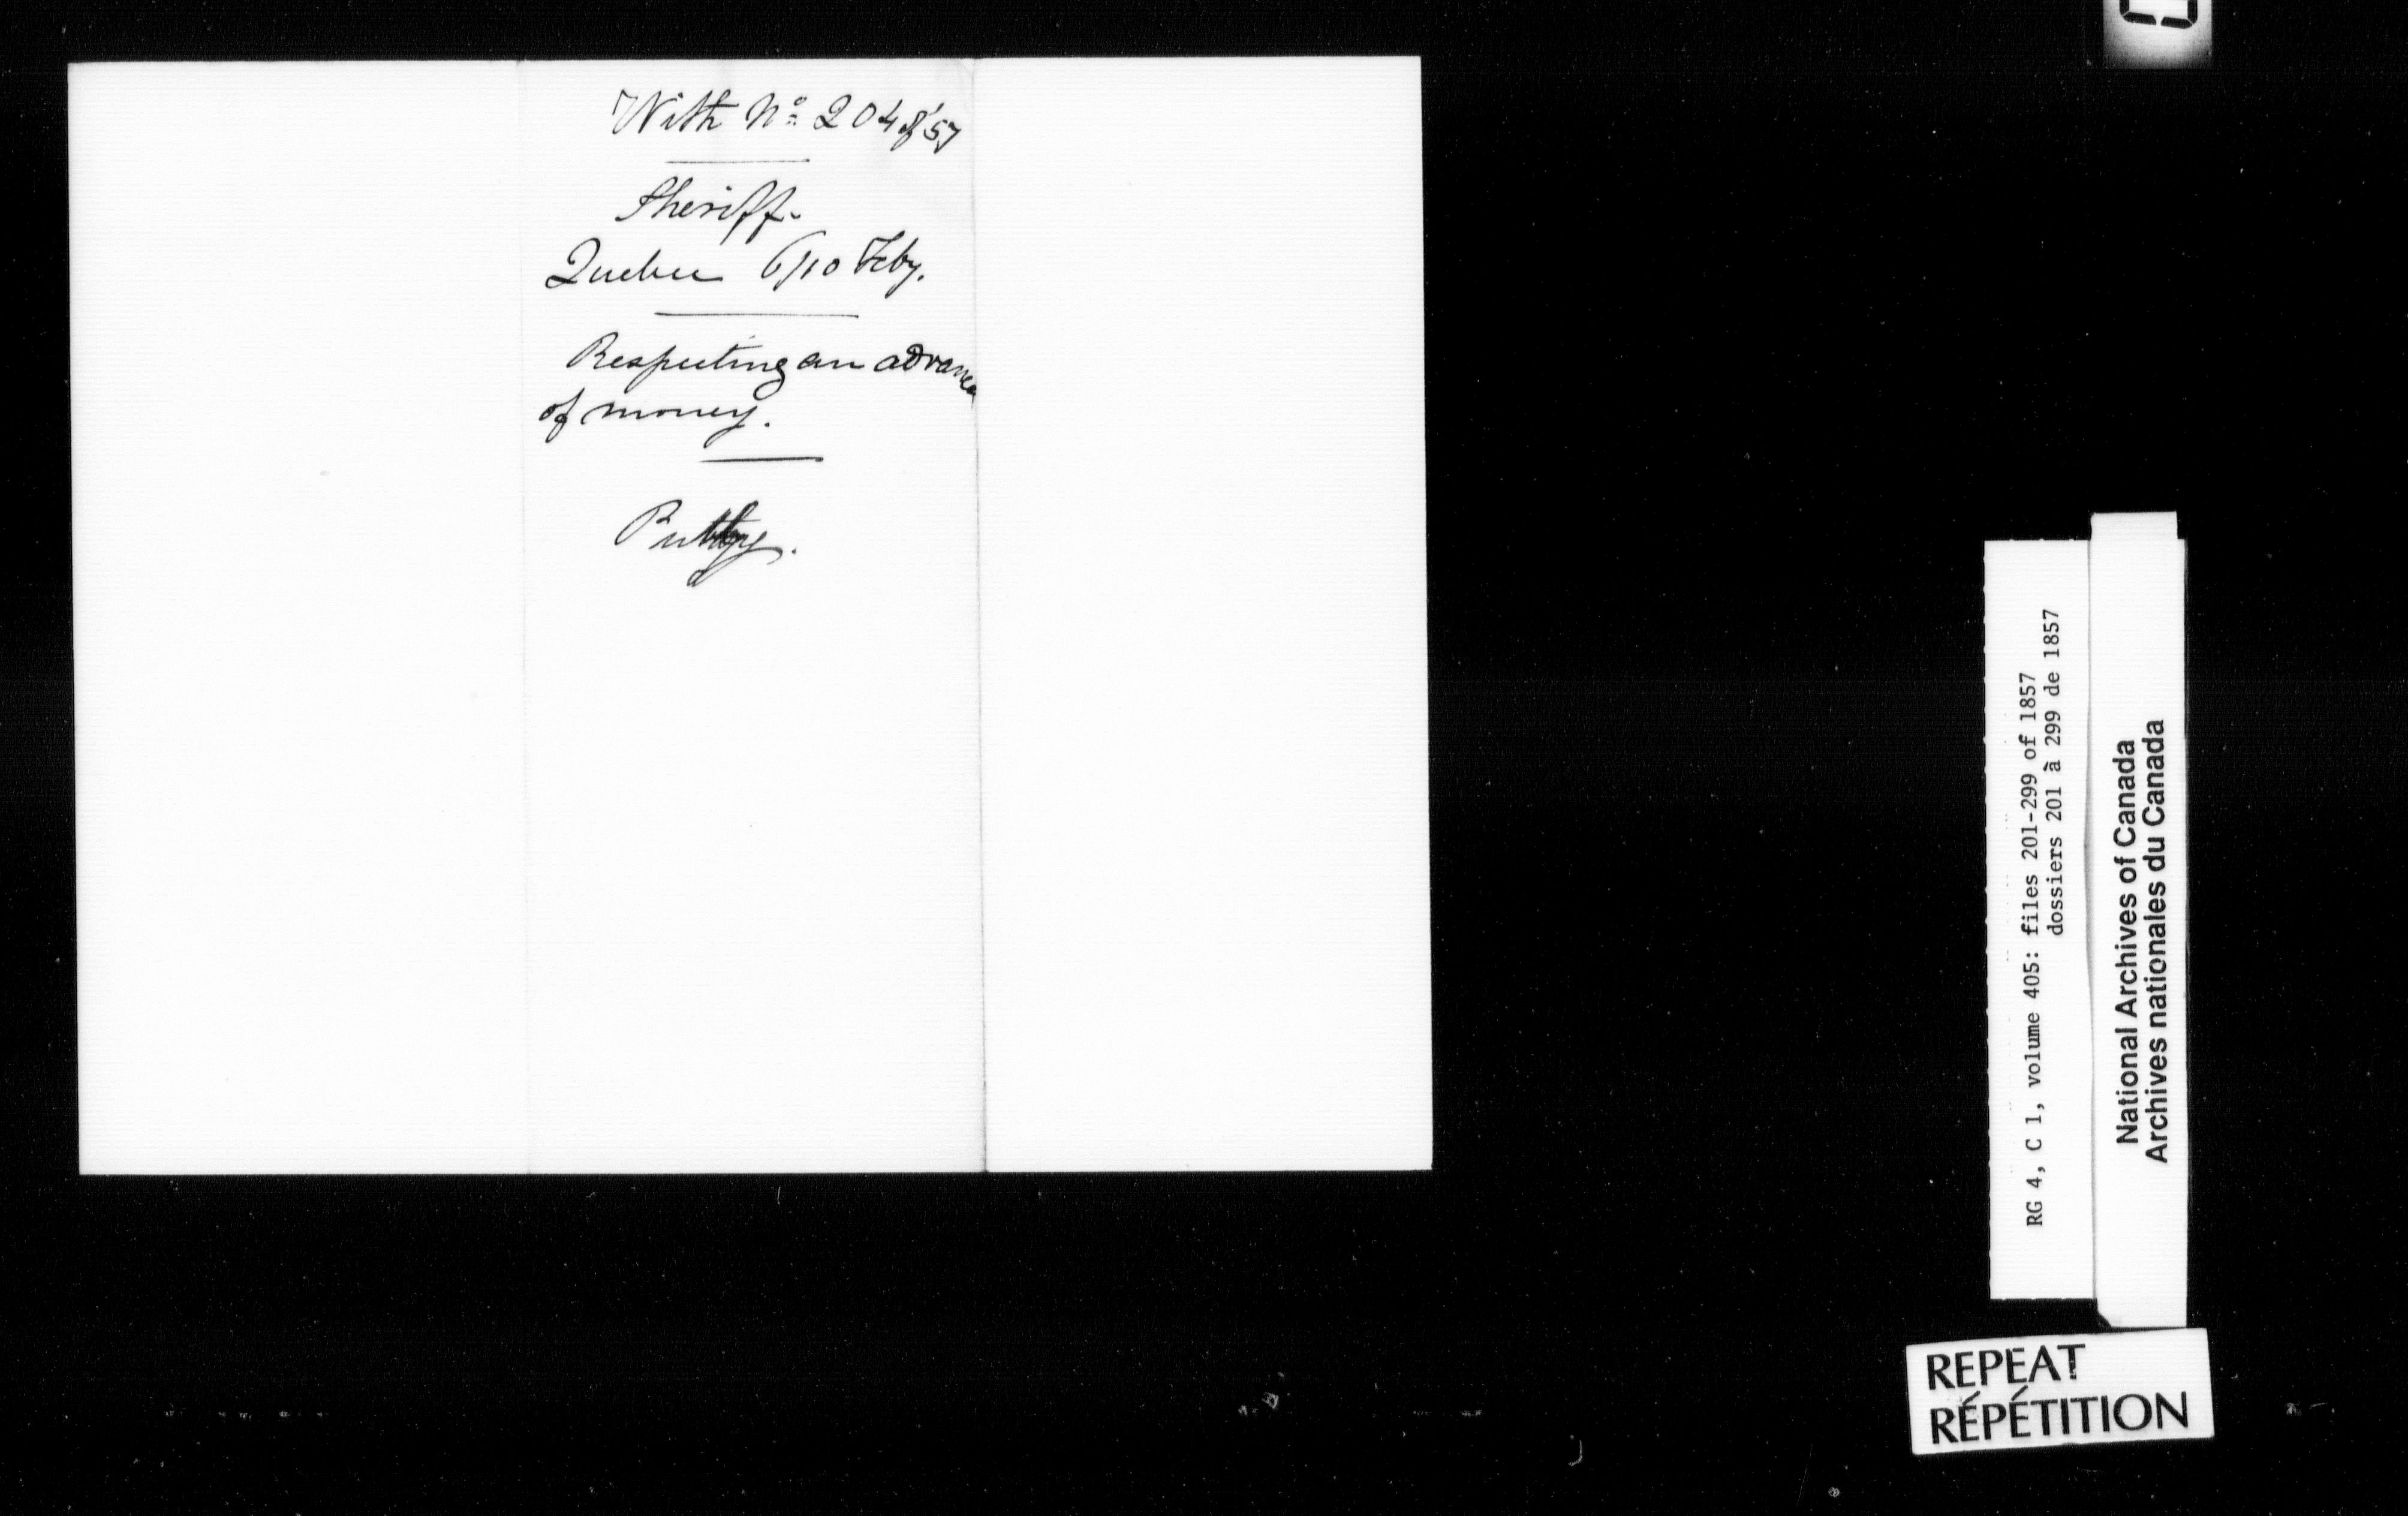 With No. 204 of '57
Sheriff.
Quebec 6/10 Feby.
Respecting an advance
of money.
RG 4, C 1, volume 405: files 201-299 of 1857
dossiers 201 à 299 de 1857
National Archives of Canada
Archives nationales du Canada
REPEAT
RÉPÉTITION